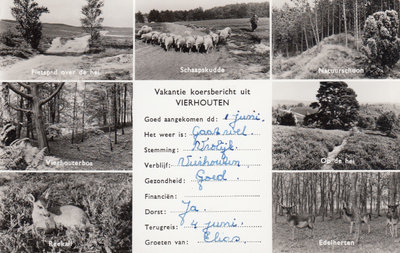 Fietspad over de hei
Schaapskudde
Natuurschoon
Vakantie koersbericht uit
VIERHOUTEN
Goed aangekomen dd: 1 juni.
Het weer is: Gaat wel.
Stemming: Vrolijk.
Verblijf: Vierhouten.
Gezondheid: Goed.
Financiën:
Dorst: Ja.
Terugreis: 4 juni.
Groeten van: Elias.
Vierhouterbos
Op de hei
Reekalf
Edelherten